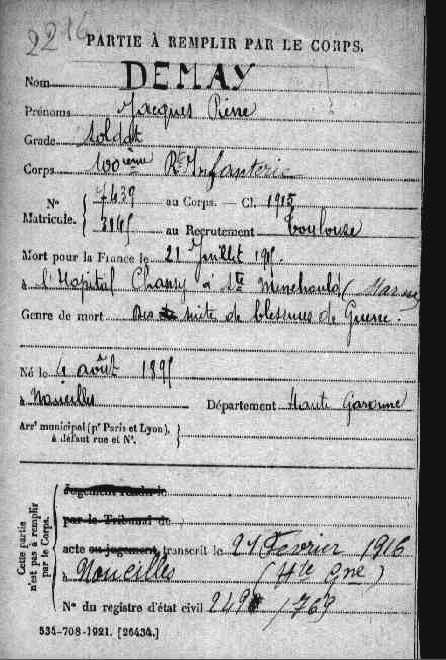 2216
PARTIE À REMPLIR PAR LE CORPS.
Nom DEMAY
Prénoms Jacques Pierre
Grade Soldat
Corps 100ième R. Infanterie
N° 7439 au Corps. — Cl. 1915
Matricule. 3145 au Recrutement Toulouse
Mort pour la France le 21 Juillet 1915
à l'Hopital Chanzy à Ste Menehould (Marne)
Genre de mort Des suite de blessures de Guerre.
Né le 4 août 1895
à Noueilles Département Haute Garonne
Arrt municipal (pr Paris et Lyon),
à défaut rue et N°.
Cette partie
n'est pas à remplir
par le Corps.
Jugement rendu le
par le Tribunal de
acte ou jugement transcrit le 21 Février 1916
à Noueilles (Hte Gne)
N° du registre d'état civil 249 / 769
534-708-1921. [26434.]